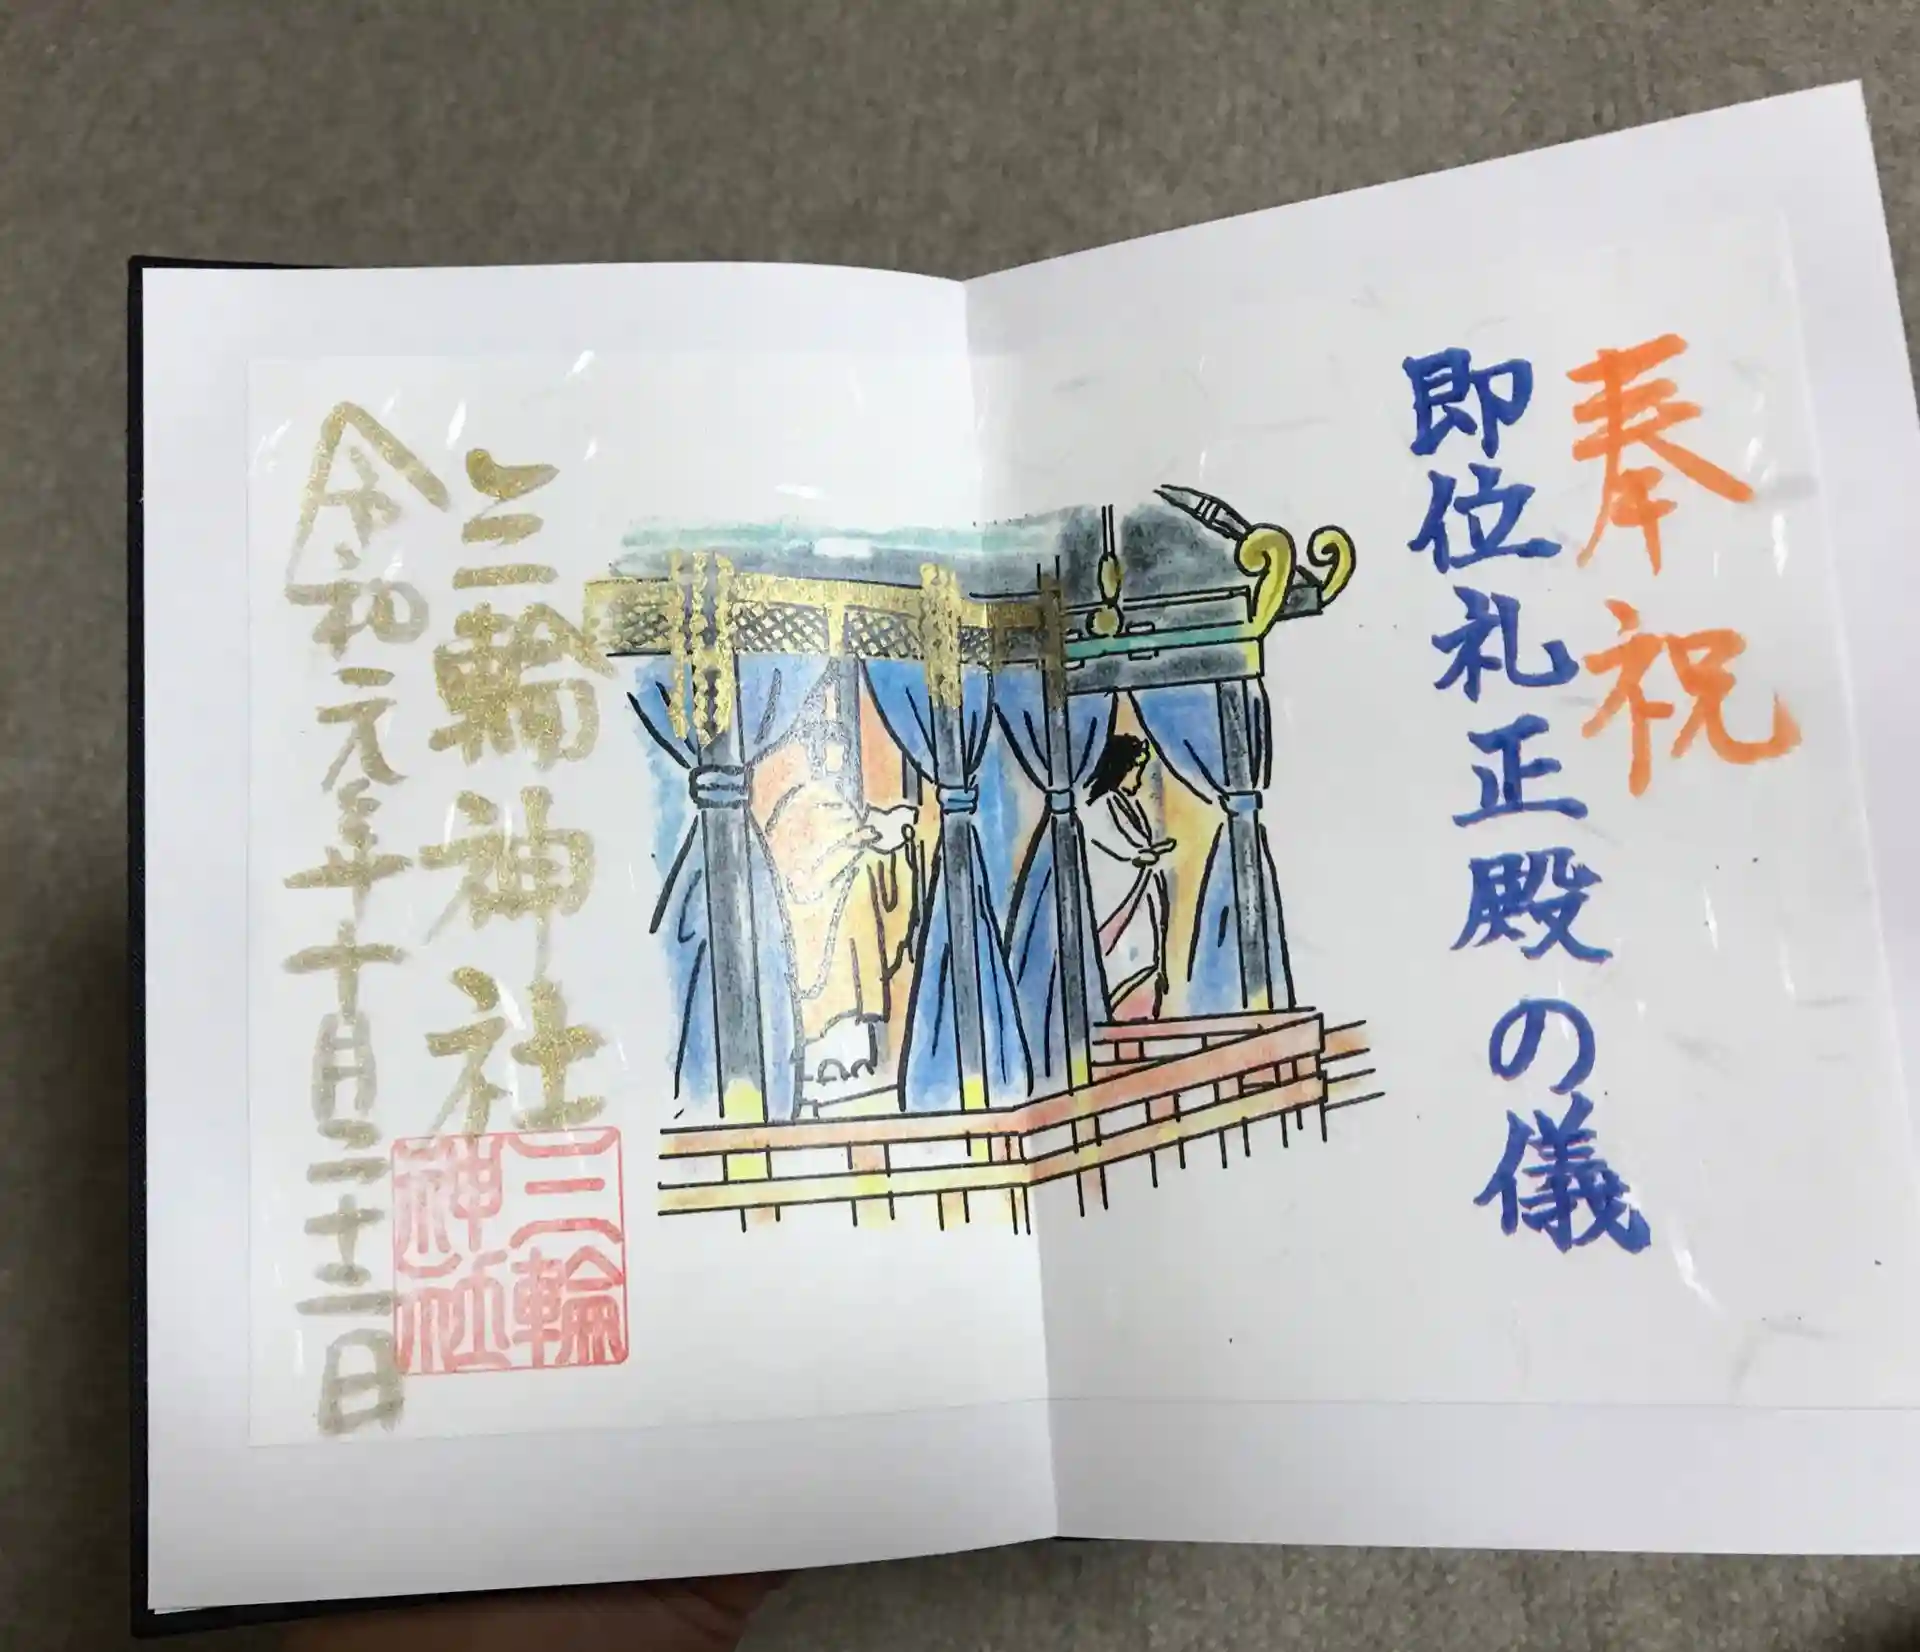 奉祝
即位礼正殿の儀
三輪神社
令和元年十月二十二日
三輪
神社